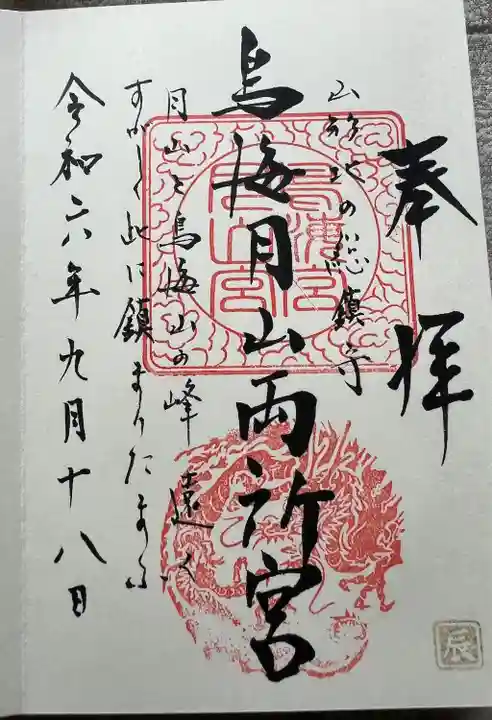 奉拝
山形北の総鎮守
鳥海月山両所宮
月山と鳥海山の峰遠く
すがしく此に鎮まりたまふ
令和六年九月十八日
辰